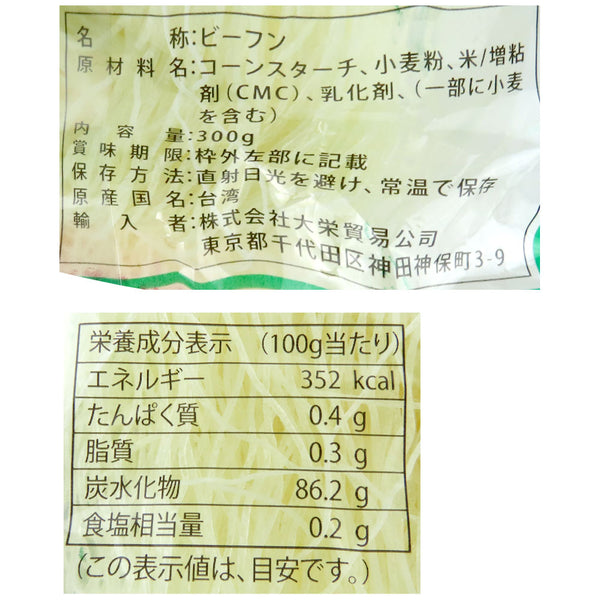 名 称:ビーフン
原材料名:コーンスターチ、小麦粉、米/増粘
剤(CMC)、乳化剤、(一部に小麦
を含む)
内容量:300g
賞味期限:枠外左部に記載
保存方法:直射日光を避け、常温で保存
原産国名:台湾
輸入者:株式会社大栄貿易公司
東京都千代田区神田神保町3-9
栄養成分表示 (100g当たり)
エネルギー 352 kcal
たんぱく質 0.4 g
脂質 0.3 g
炭水化物 86.2 g
食塩相当量 0.2 g
(この表示値は、目安です。)